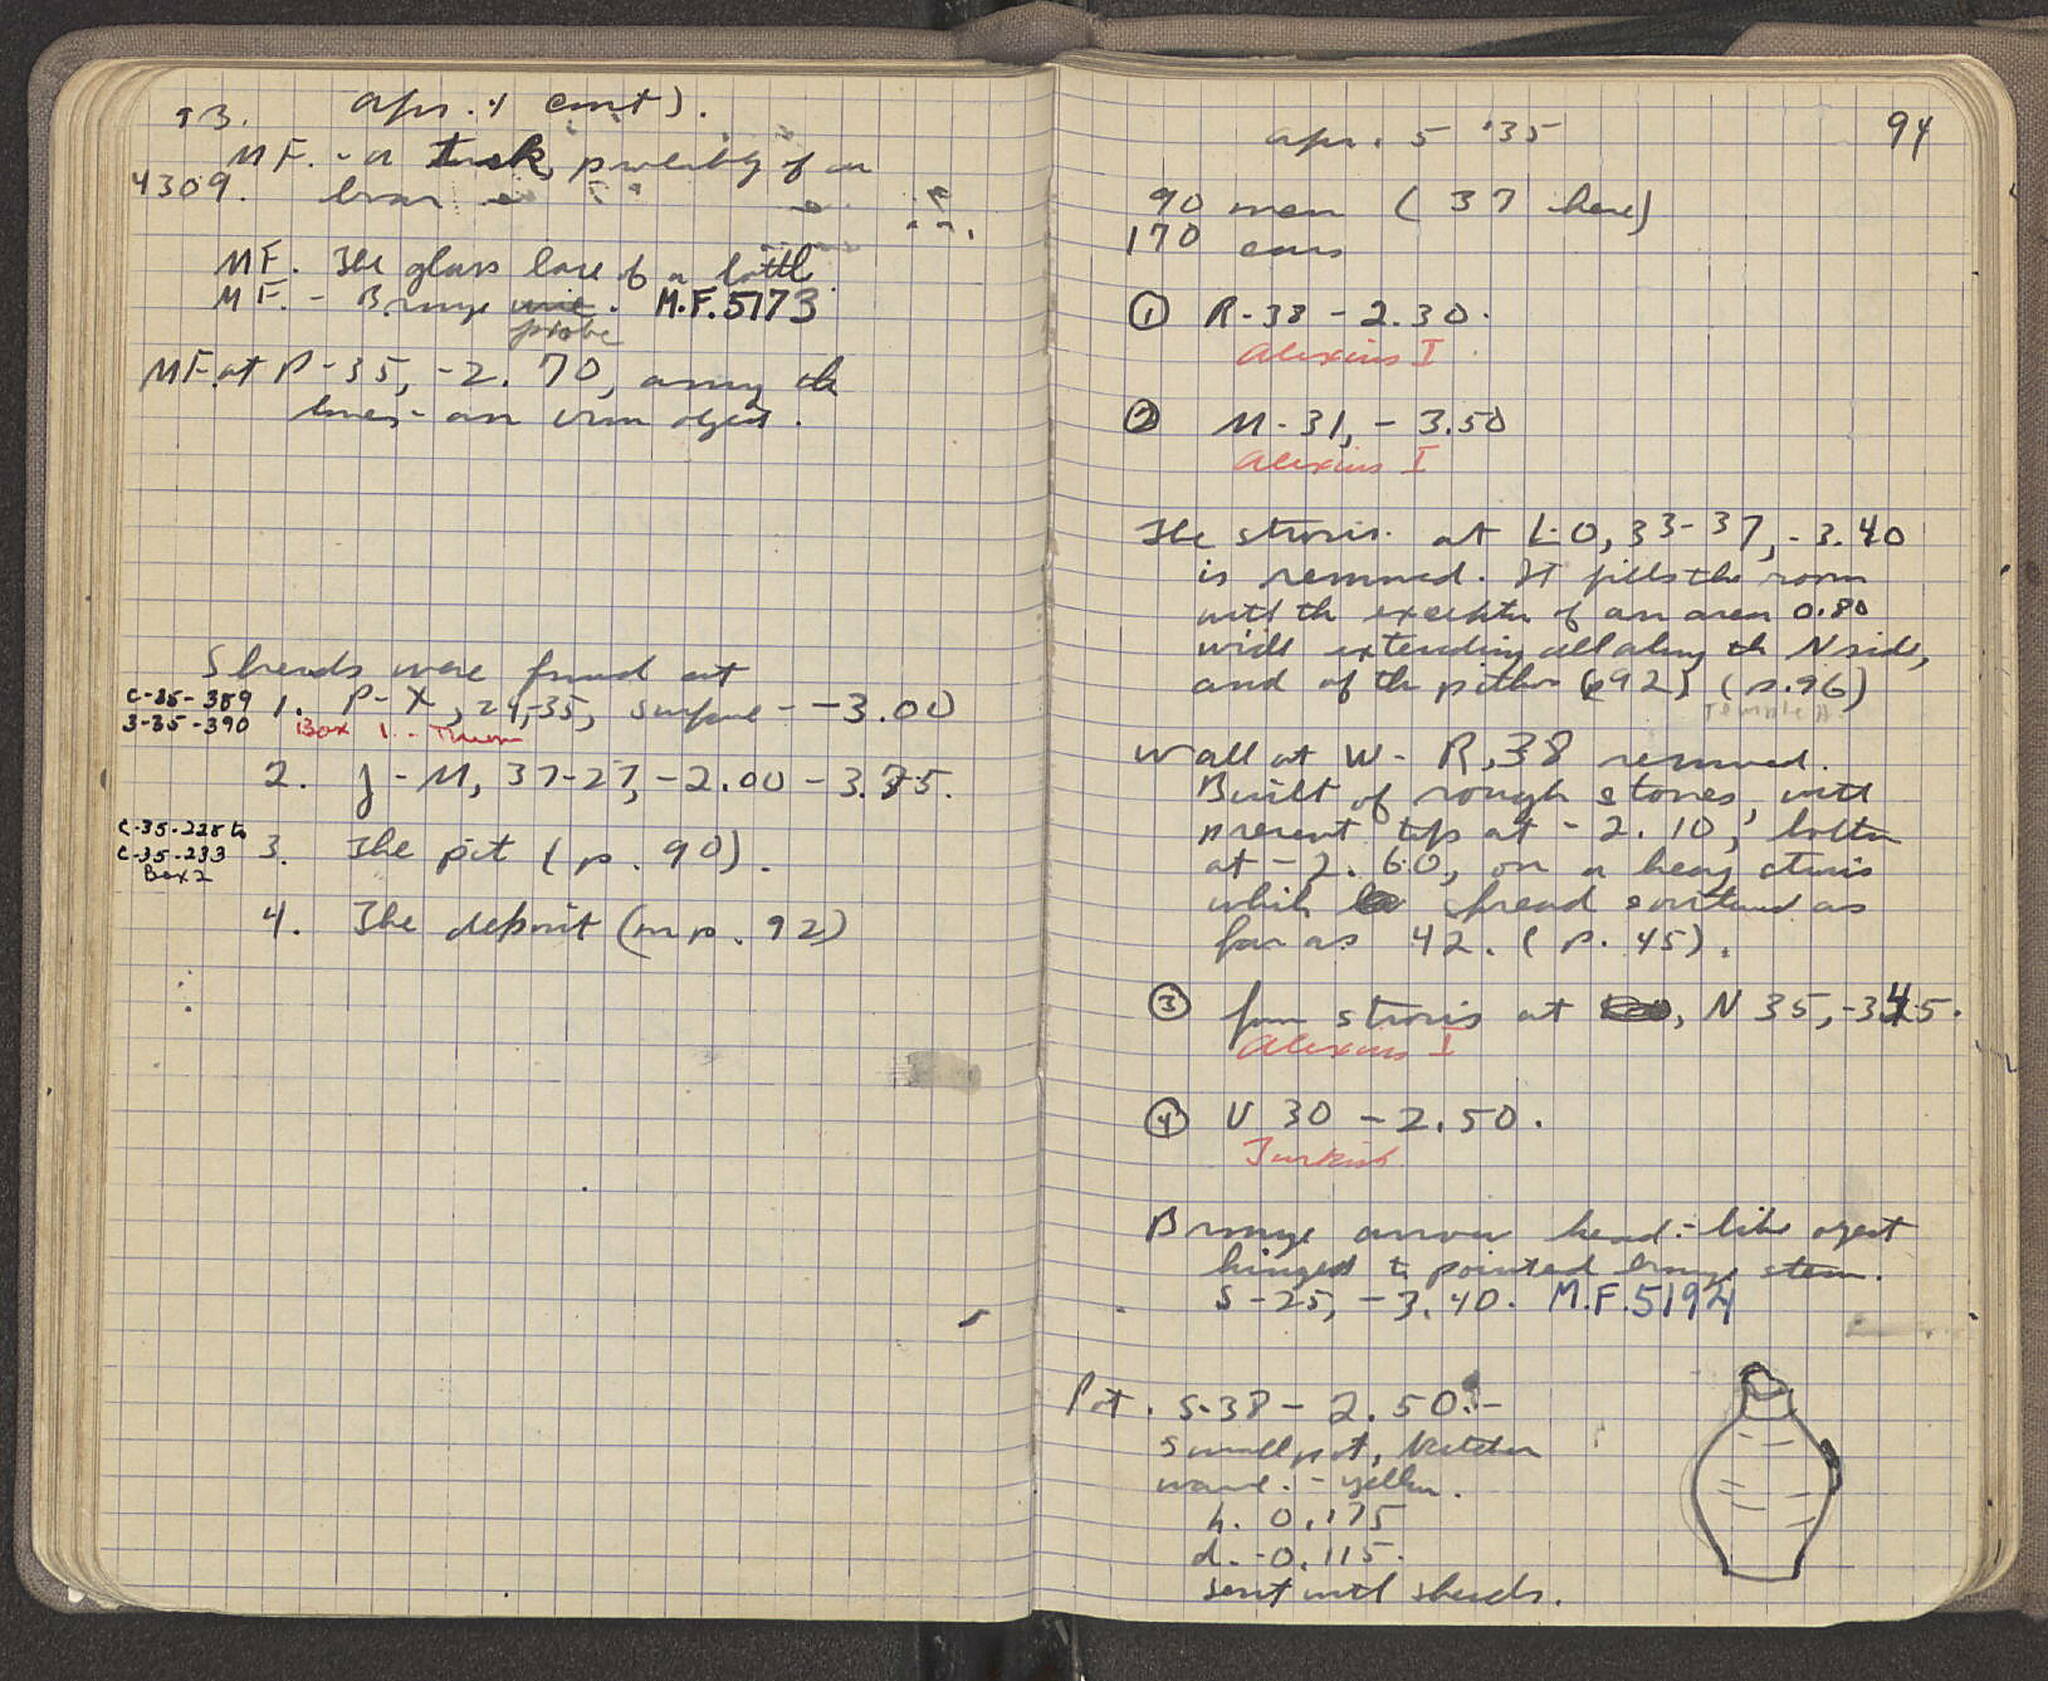 93. Apr. 4 cont).
MF. - a tusk, probably of a
4309. boar
MF. The glass base of a bottle.
MF. - Bronze wire. M.F. 5173
probe
MF. at P-35, -2.70, among the
bones - an iron object.
Sherds were found at
C-35-389
3-35-390
1. P-X, 24,-35, surface - -3.00
Box 1 -
2. J - M, 37-27, -2.00 - 3.75.
C-35-228 to
C-35-233
Box 2
3. The pit (p. 90).
4. The deposit (on p. 92)
Apr. 5 '35 94
90 men (37 here)
170 cars
① R-38 - 2.30.
Alexius I
② M-31, - 3.50
Alexius I
The strosis. at L-O, 33-37, -3.40
is removed. It fills the room
with the exception of an area 0.80
wide extending all along the N side,
and of the pithos (p92) (p.96)
Temple A.
Wall at W - R, 38 removed.
Built of rough stones, with
present top at -2.10, bottom
at -2.60, on a heavy strosis
which spread southward as
far as 42. (p. 45).
③ from strosis at , N 35, -3.45.
Alexius I
④ U 30 - 2.50.
Turkish
Bronze arrow head-like object
hinged to pointed bronze stem.
S-25, -3.40. M.F. 5194
Pot. S-38 - 2.50:-
Small pot, kitchen
ware. - yellow.
h. 0.175
d. -0.115.
sent with sherds.